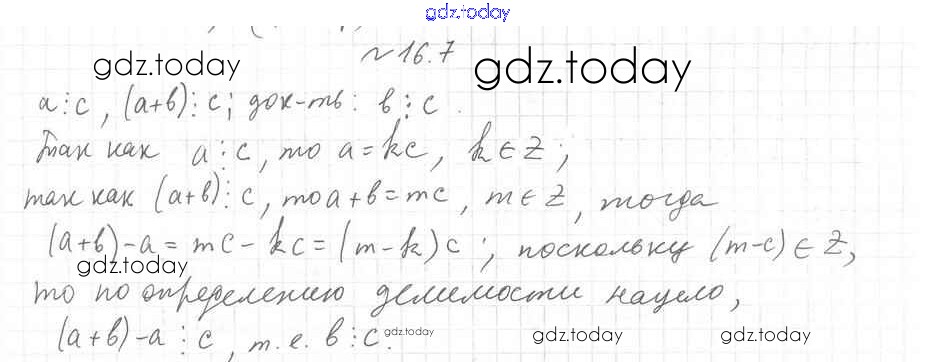 gdz.today
№ 16.7
gdz.today gdz.today
a⋮c, (a+b)⋮c; док-ть: b⋮c.
Так как a⋮c, то a=kc, k∈Z;
так как (a+b)⋮c, то a+b=mc, m∈Z, тогда
(a+b)-a=mc-kc=(m-k)c; поскольку (m-c)∈Z,
gdz.today
то по определению делимости нацело,
(a+b)-a⋮c, т.е. b⋮c.
gdz.today gdz.today gdz.today